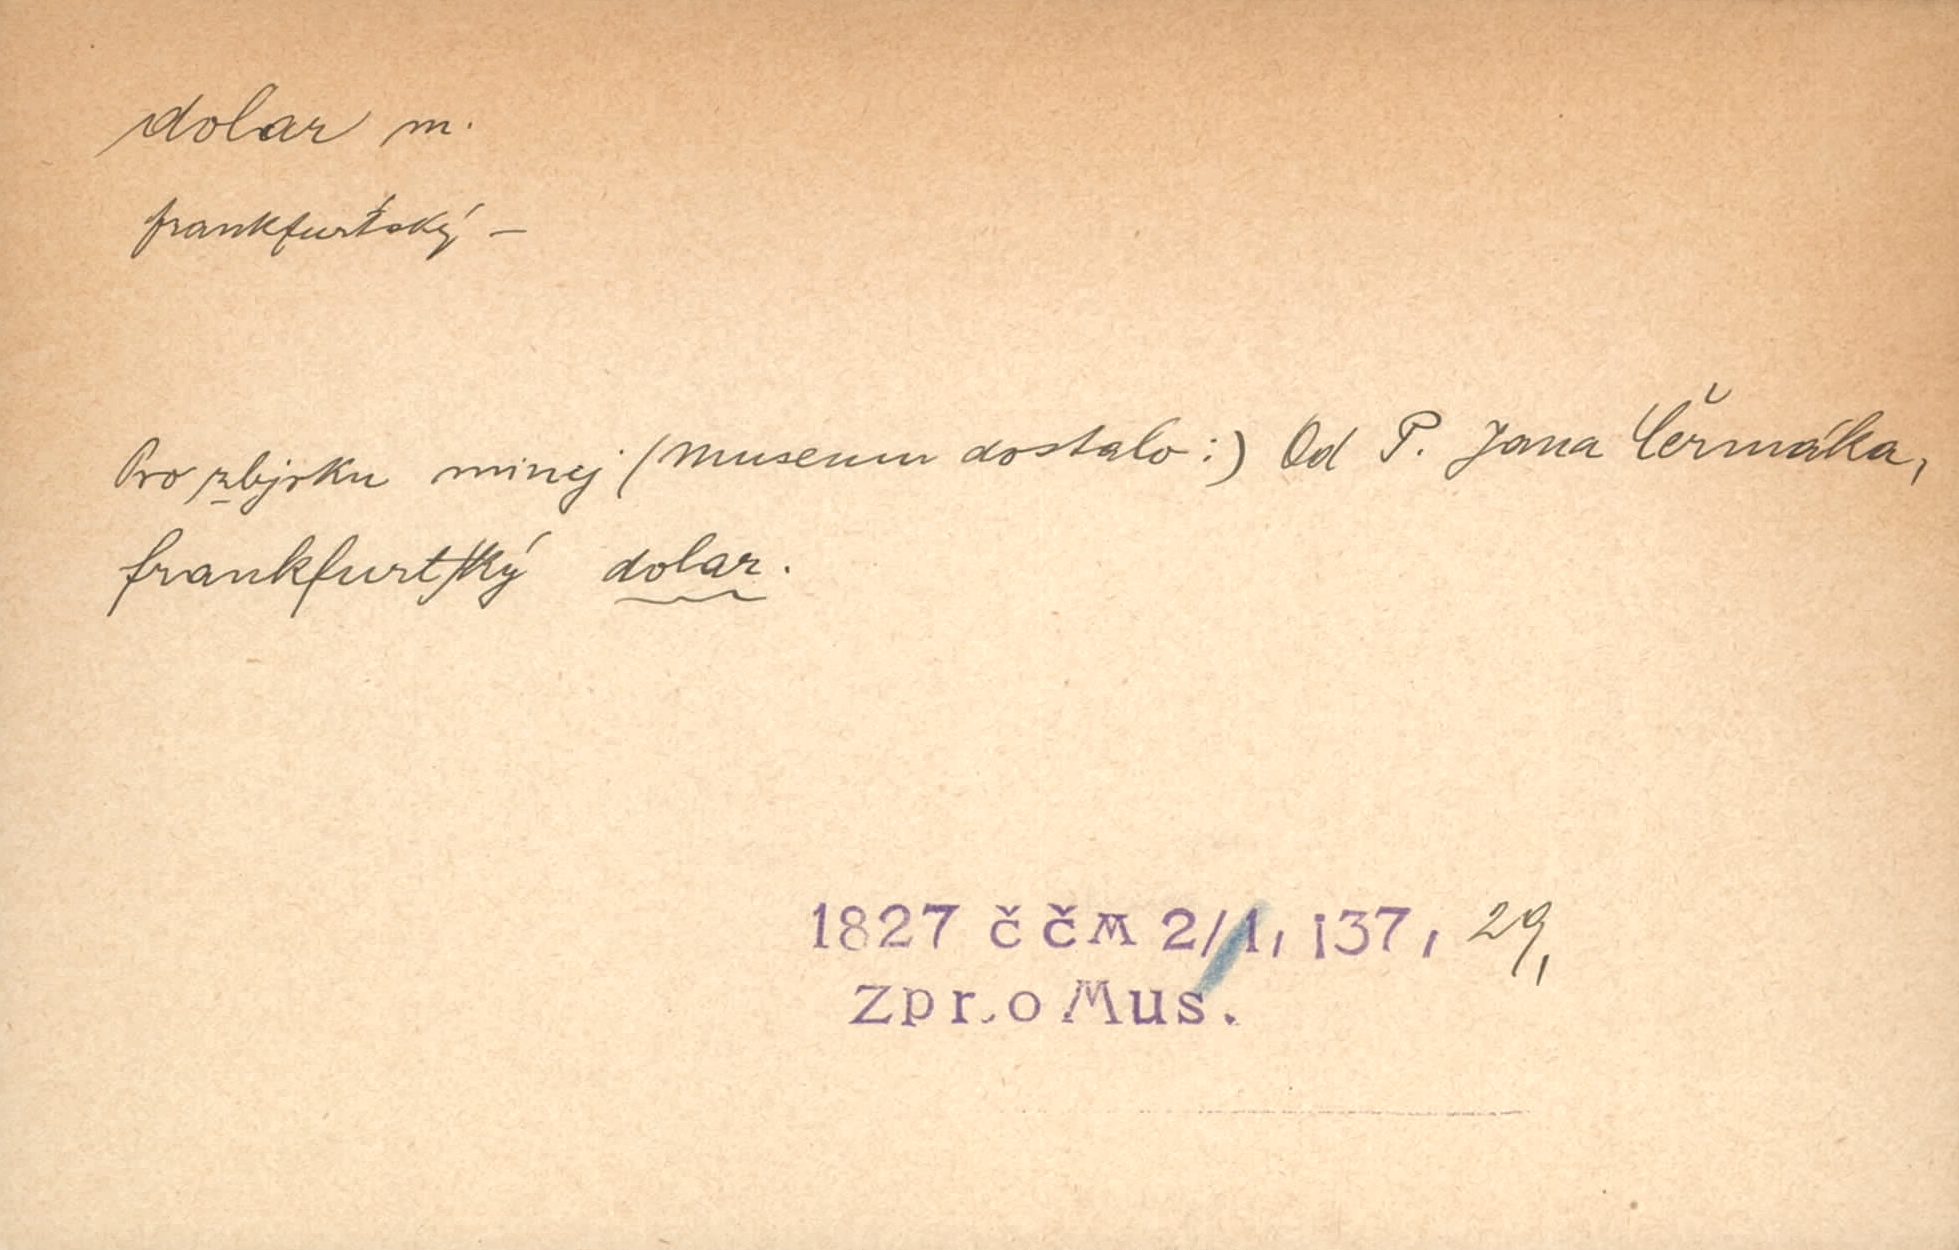 dolar m.
frankfurtský –
Pro zbjrku mincj (Museum dostalo:) Od P. Jana Čermáka,
frankfurtſký dolar.
1827 ččM 2/1, 137, 29,
Zpr. o Mus.